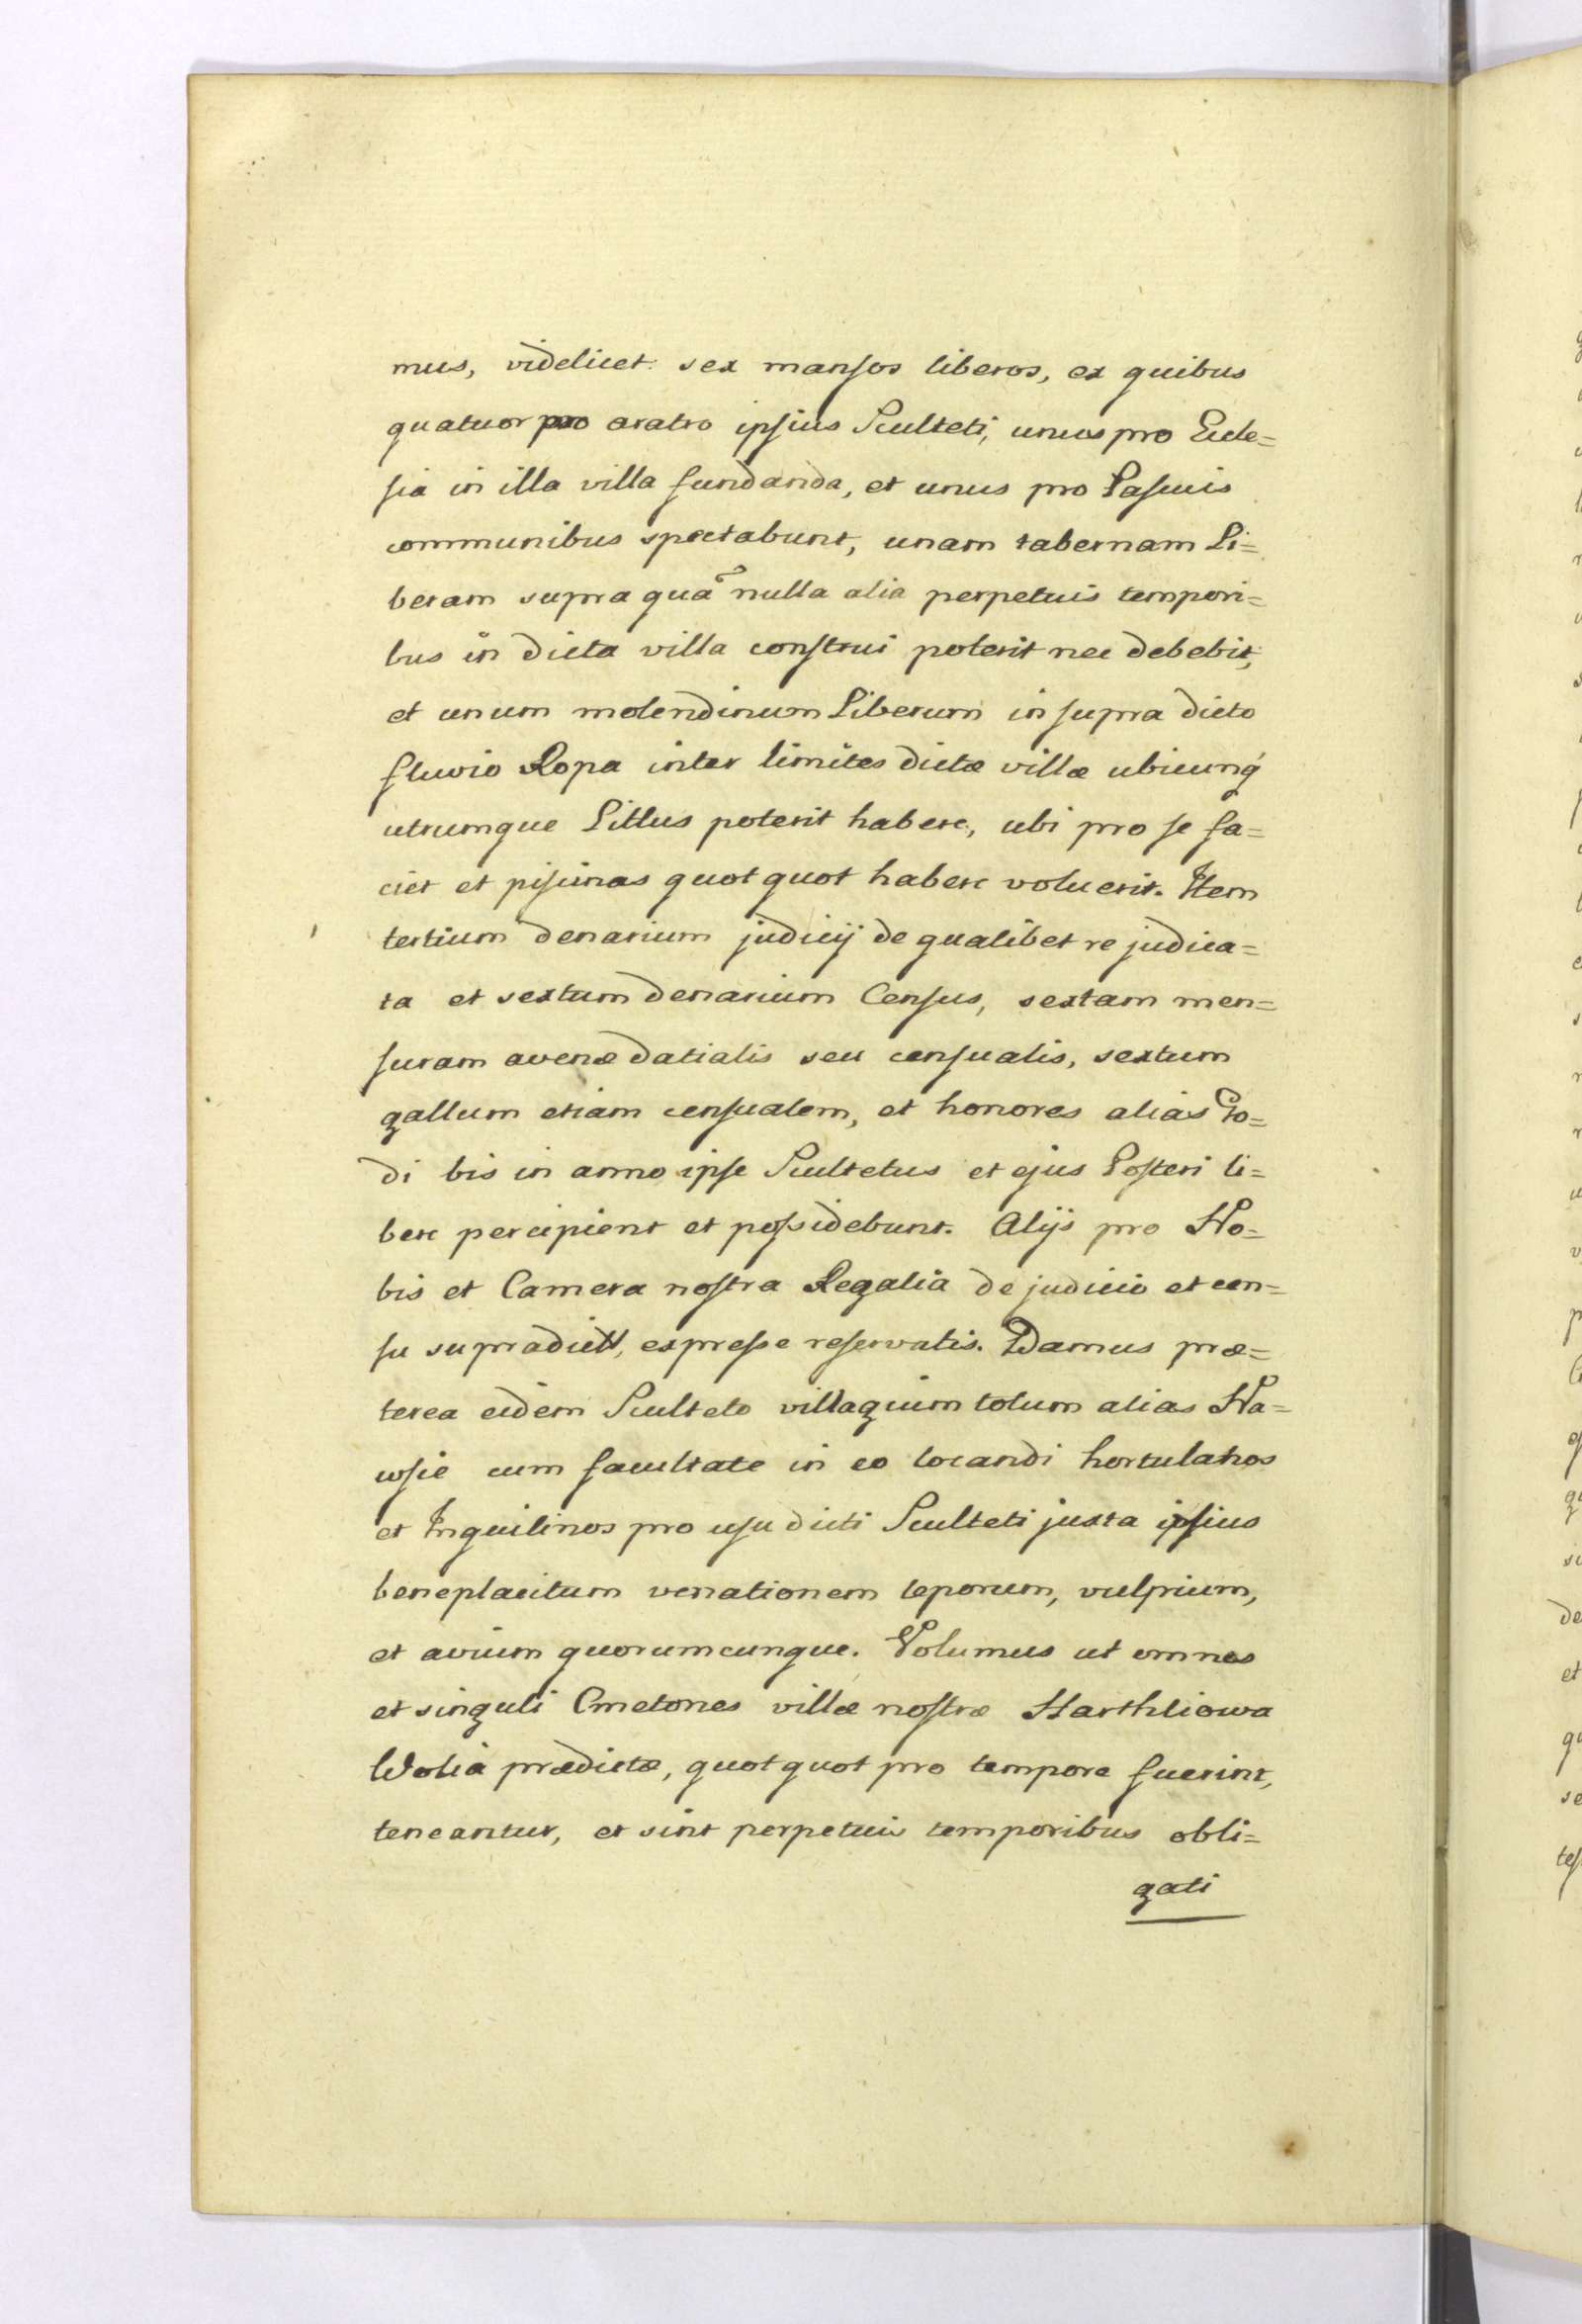 mus, videlicet sex mansos liberos, ex quibus
quatuor pro aratro ipsius Sculteti, unus pro Eccle=
sia in illa villa fundanda, et unus pro Pascuis
communibus spectabunt, unam tabernam Li=
beram supra quã nulla alia perpetuis tempori=
bus in dicta villa construi poterit nec debebit,
et unum molendinum Liberum in supra dicto
fluvio Ropa inter limites dictæ villæ ubicunq́
utrumque Littus poterit habere, ubi pro se fa=
ciet et piscinas quot quot habere voluerit. Item
tertium denarium judicij de qualibet re judica=
ta et sextum denarium Census, sextam men=
suram avenæ datialis seu censualis, sextum
gallum etiam censualem, et honores alias Po=
di bis in anno ipse Scultetus et ejus Posteri li=
bere percipient et possidebunt. Alijs pro No=
bis et Camera nostra Regalia de judicio et cen=
su supradict, expresse reservatis. Damus præ=
terea eidem Sculteto villagium totum alias Na=
wsie cum facultate in eo locandi hortulanos
et Inquilinos pro usu dicti Sculteti juxta ipsius
beneplacitum venationem leporum, vulpium,
et avium quorumcunque. Volumus ut omnes
et singuli Cmetones villæ nostræ Harthliowa
Wolia prædictæ, quot quot pro tempore fuerint,
teneantur, et sint perpetuis temporibus obli=
gati